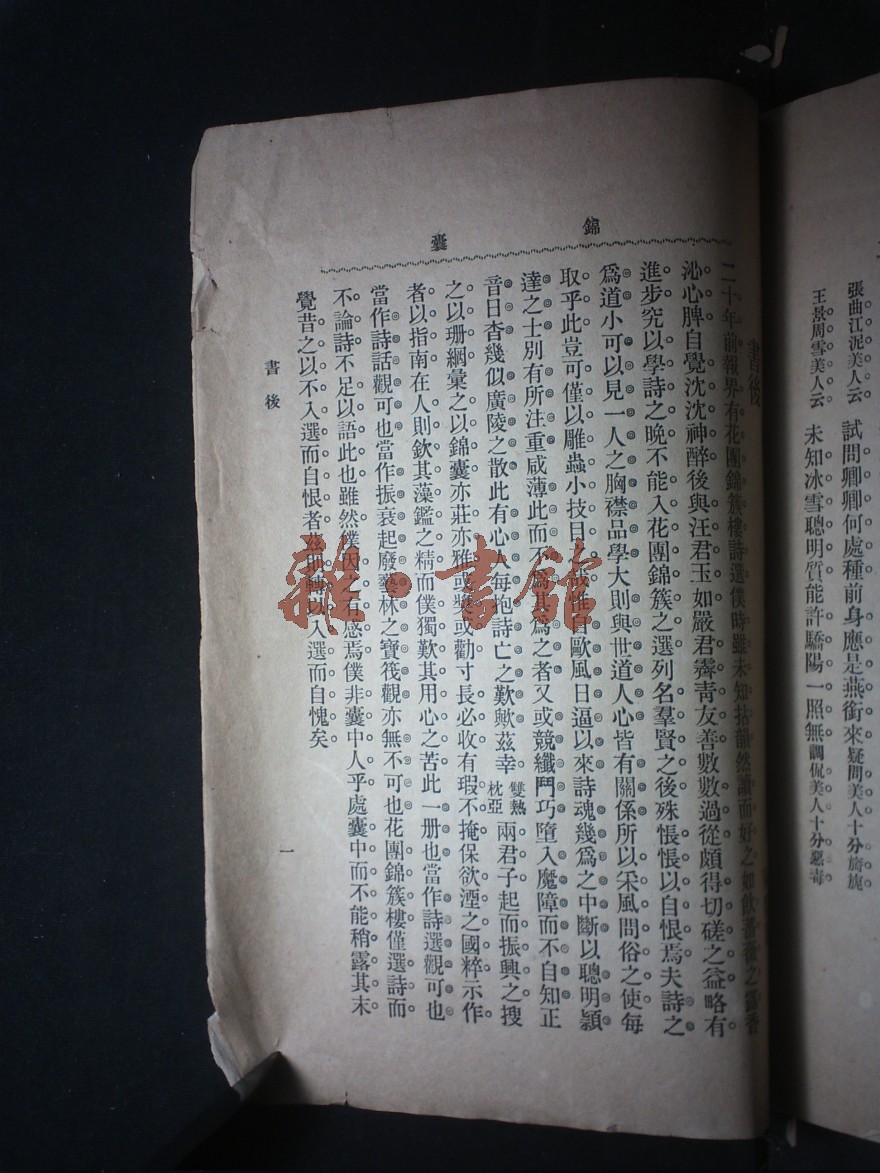 張曲江泥美人云 試問卿卿何處種前身應是燕銜來疑問美人十分旖旎
王景周雪美人云 未知冰雪聰明質能許驕陽一照無調侃美人十分惡毒
錦囊
書後
二十年前報界有花團錦簇樓詩選僕時雖未知拈韻然讀而好之如飲薔薇之露香
沁心脾自覺沈沈神醉後與汪君玉如嚴君霽青友善數數過從頗得切磋之益略有
進步究以學詩之晚不能入花團錦簇之選列名羣賢之後殊悵悵以自恨焉夫詩之
爲道小可以見一人之胸襟品學大則與世道人心皆有關係所以采風問俗之使每
取乎此豈可僅以雕蟲小技目 哉惟自歐風日逼以來詩魂幾爲之中斷以聰明穎
達之士別有所注重咸薄此而不爲其爲之者又或競纖鬥巧墮入魔障而不自知正
音日杳幾似廣陵之散此有心人每抱詩亡之歎歟茲幸雙熱枕亞兩君子起而振興之搜
之以珊網彙之以錦囊亦莊亦雅或獎或勸寸長必收有瑕不掩保欲湮之國粹示作
者以指南在人則欽其藻鑑之精而僕獨歎其用心之苦此一册也當作詩選觀可也
當作詩話觀可也當作振衰起廢藝林之寶筏觀亦無不可也花團錦簇樓僅選詩而
不論詩不足以語此也雖然僕因之有感焉僕非囊中人乎處囊中而不能稍露其末
覺昔之以不入選而自恨者茲即轉以入選而自愧矣
書後
一
雜·書館